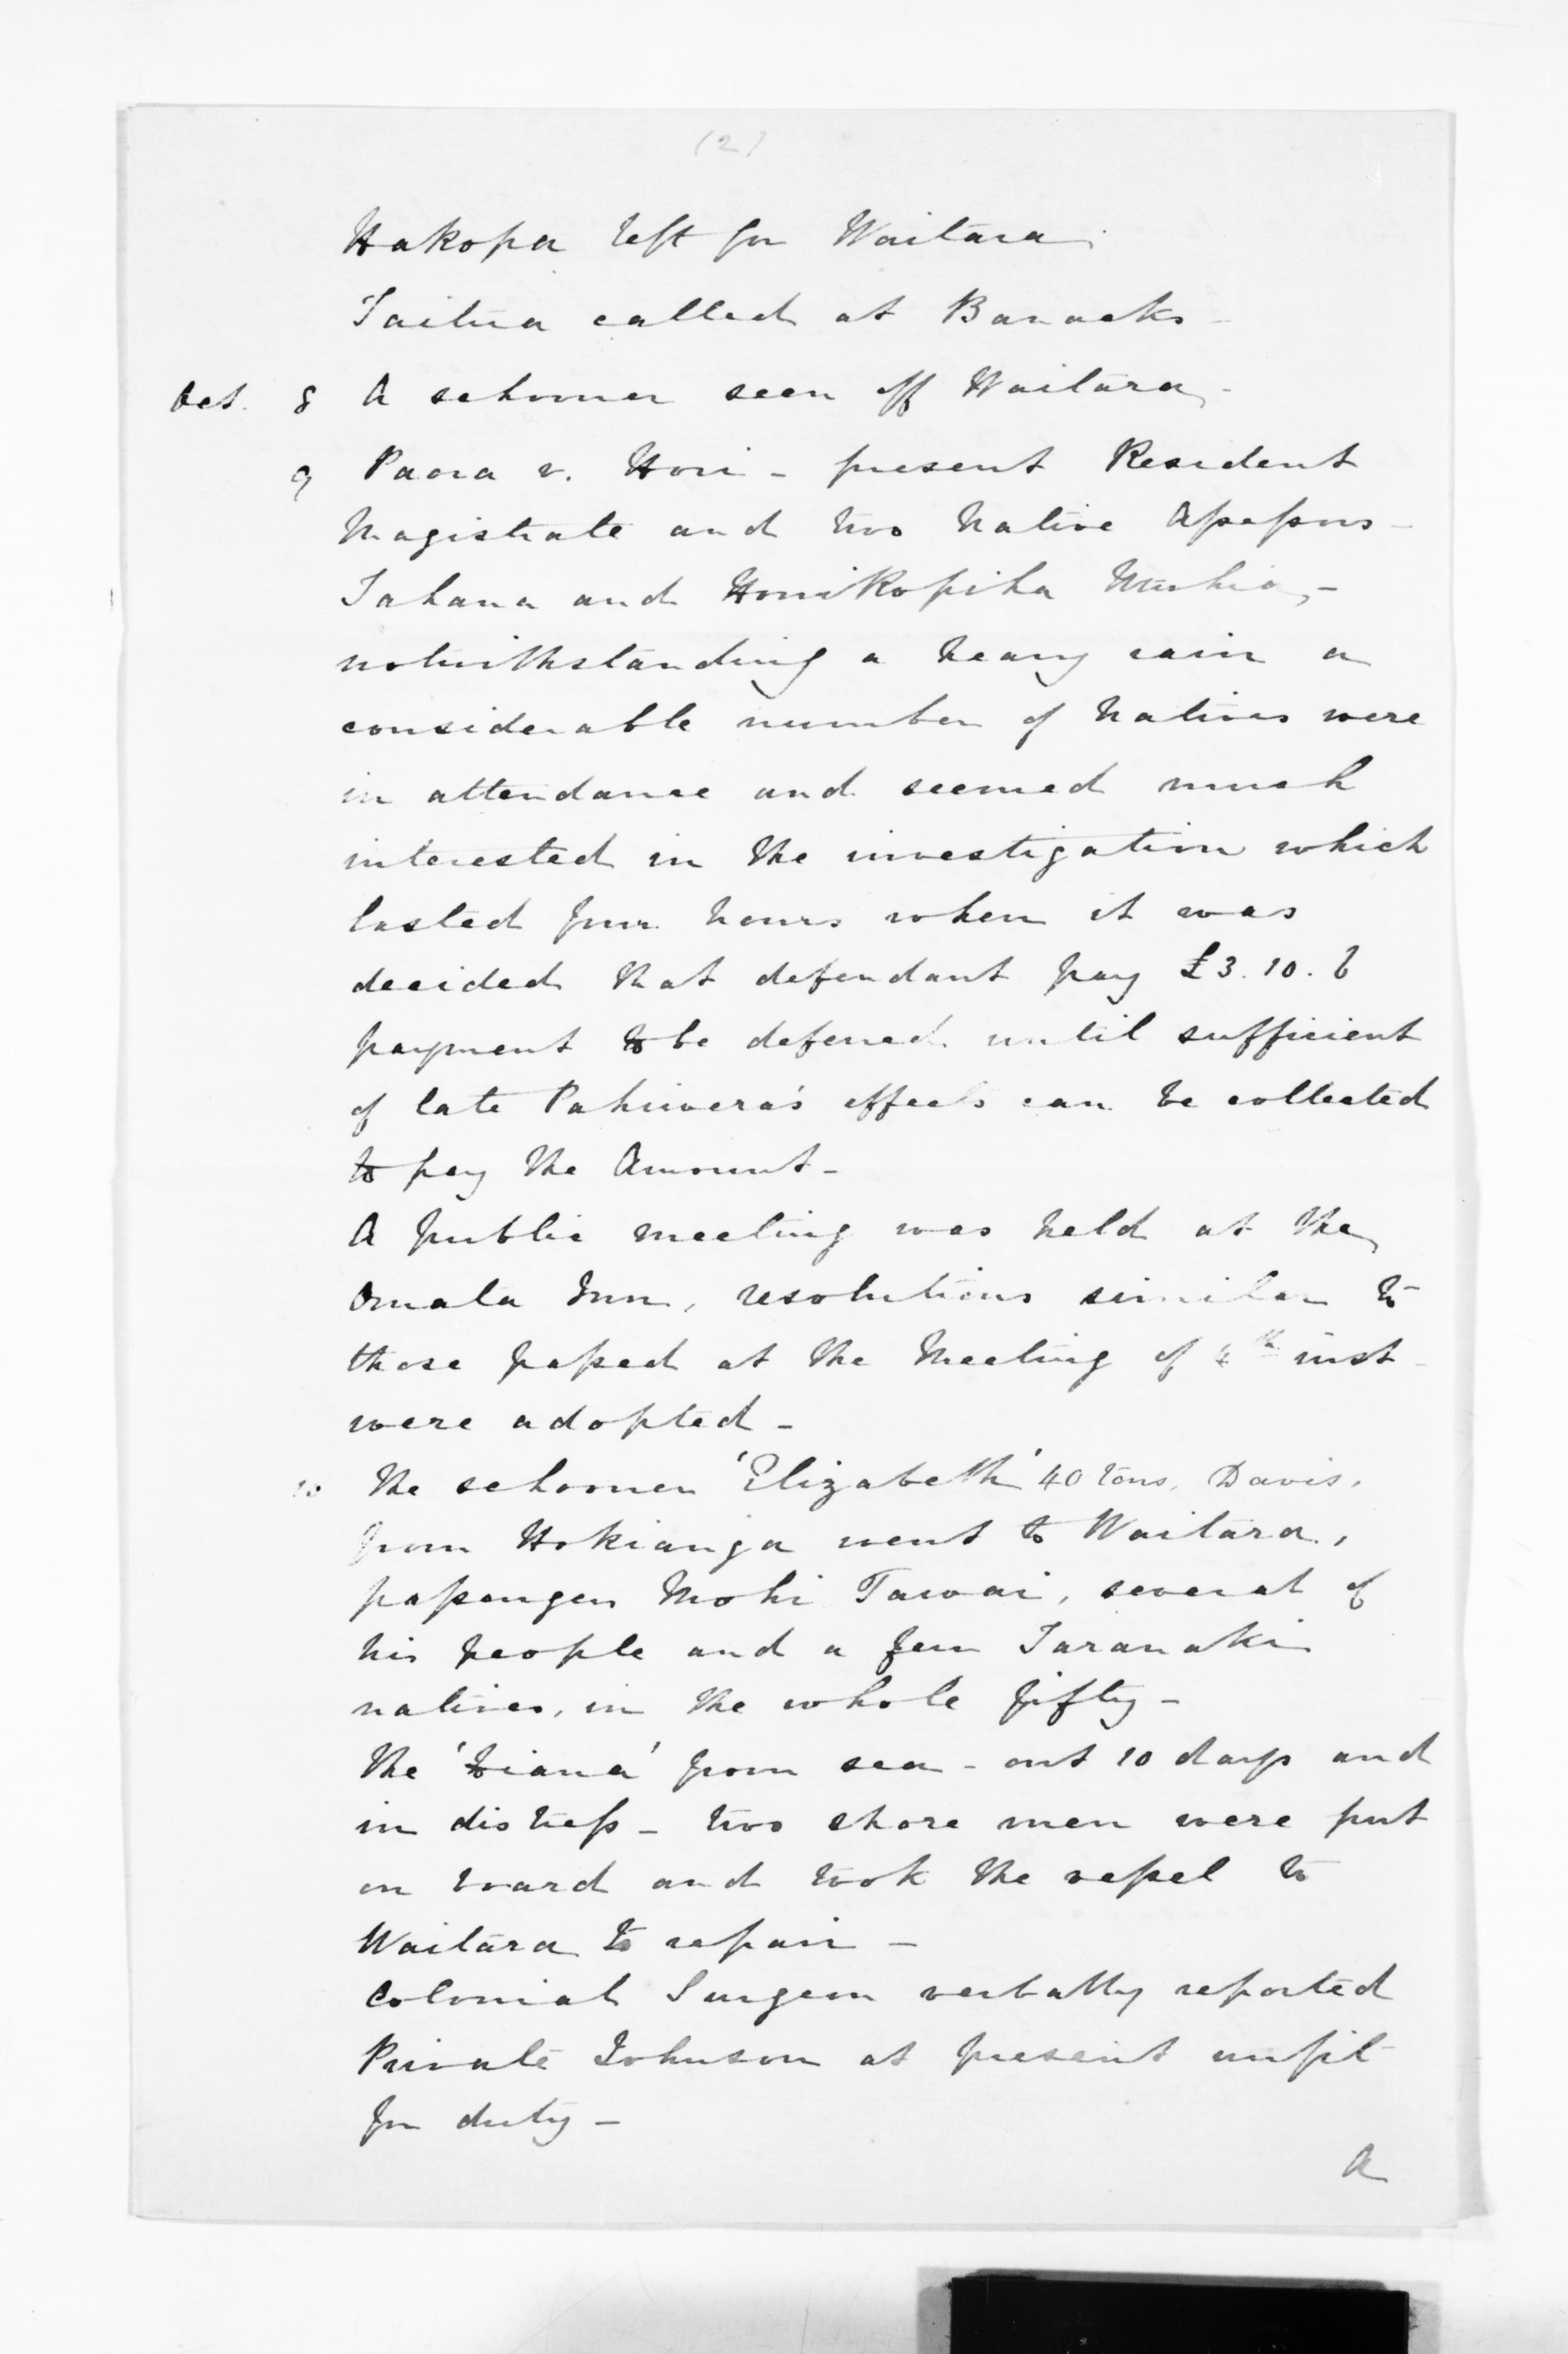 (2)
Hakopa left for Waitara.
Taitua called at Barracks -
Oct. 8 A schooner seen off Waitara, -
9 Paora v. Hori - present Resident
Magistrate and two Native Assessors -
Tahana and Honi Kopiha, -
notwithstanding a heavy rain a
considerable number of Natives were
in attendance and seemed much
interested in the investigation which
lasted four hours when it was
decided that defendant pay £3.10.6
payment to be deferred until sufficient
of late Pahiwera's effects can be collected
to pay the Amount -
A public meeting was held at the
Omata Inn, resolutions similar to
those passed at the Meeting of 4th inst -
were adopted -
10 The schooner 'Elizabeth' 40 tons, Davis,
from Hokianga went to Waitara,
passengers Mohi Tawai, several of
his people and a few Taranaki
natives, in the whole fifty -
The 'Diana' from sea - out 10 days and
in distress - two shore men were put
on board and took the vessel to
Waitara to repair -
Colonial Surgeon verbally reported
Private Johnson at present unfit
for duty -
A